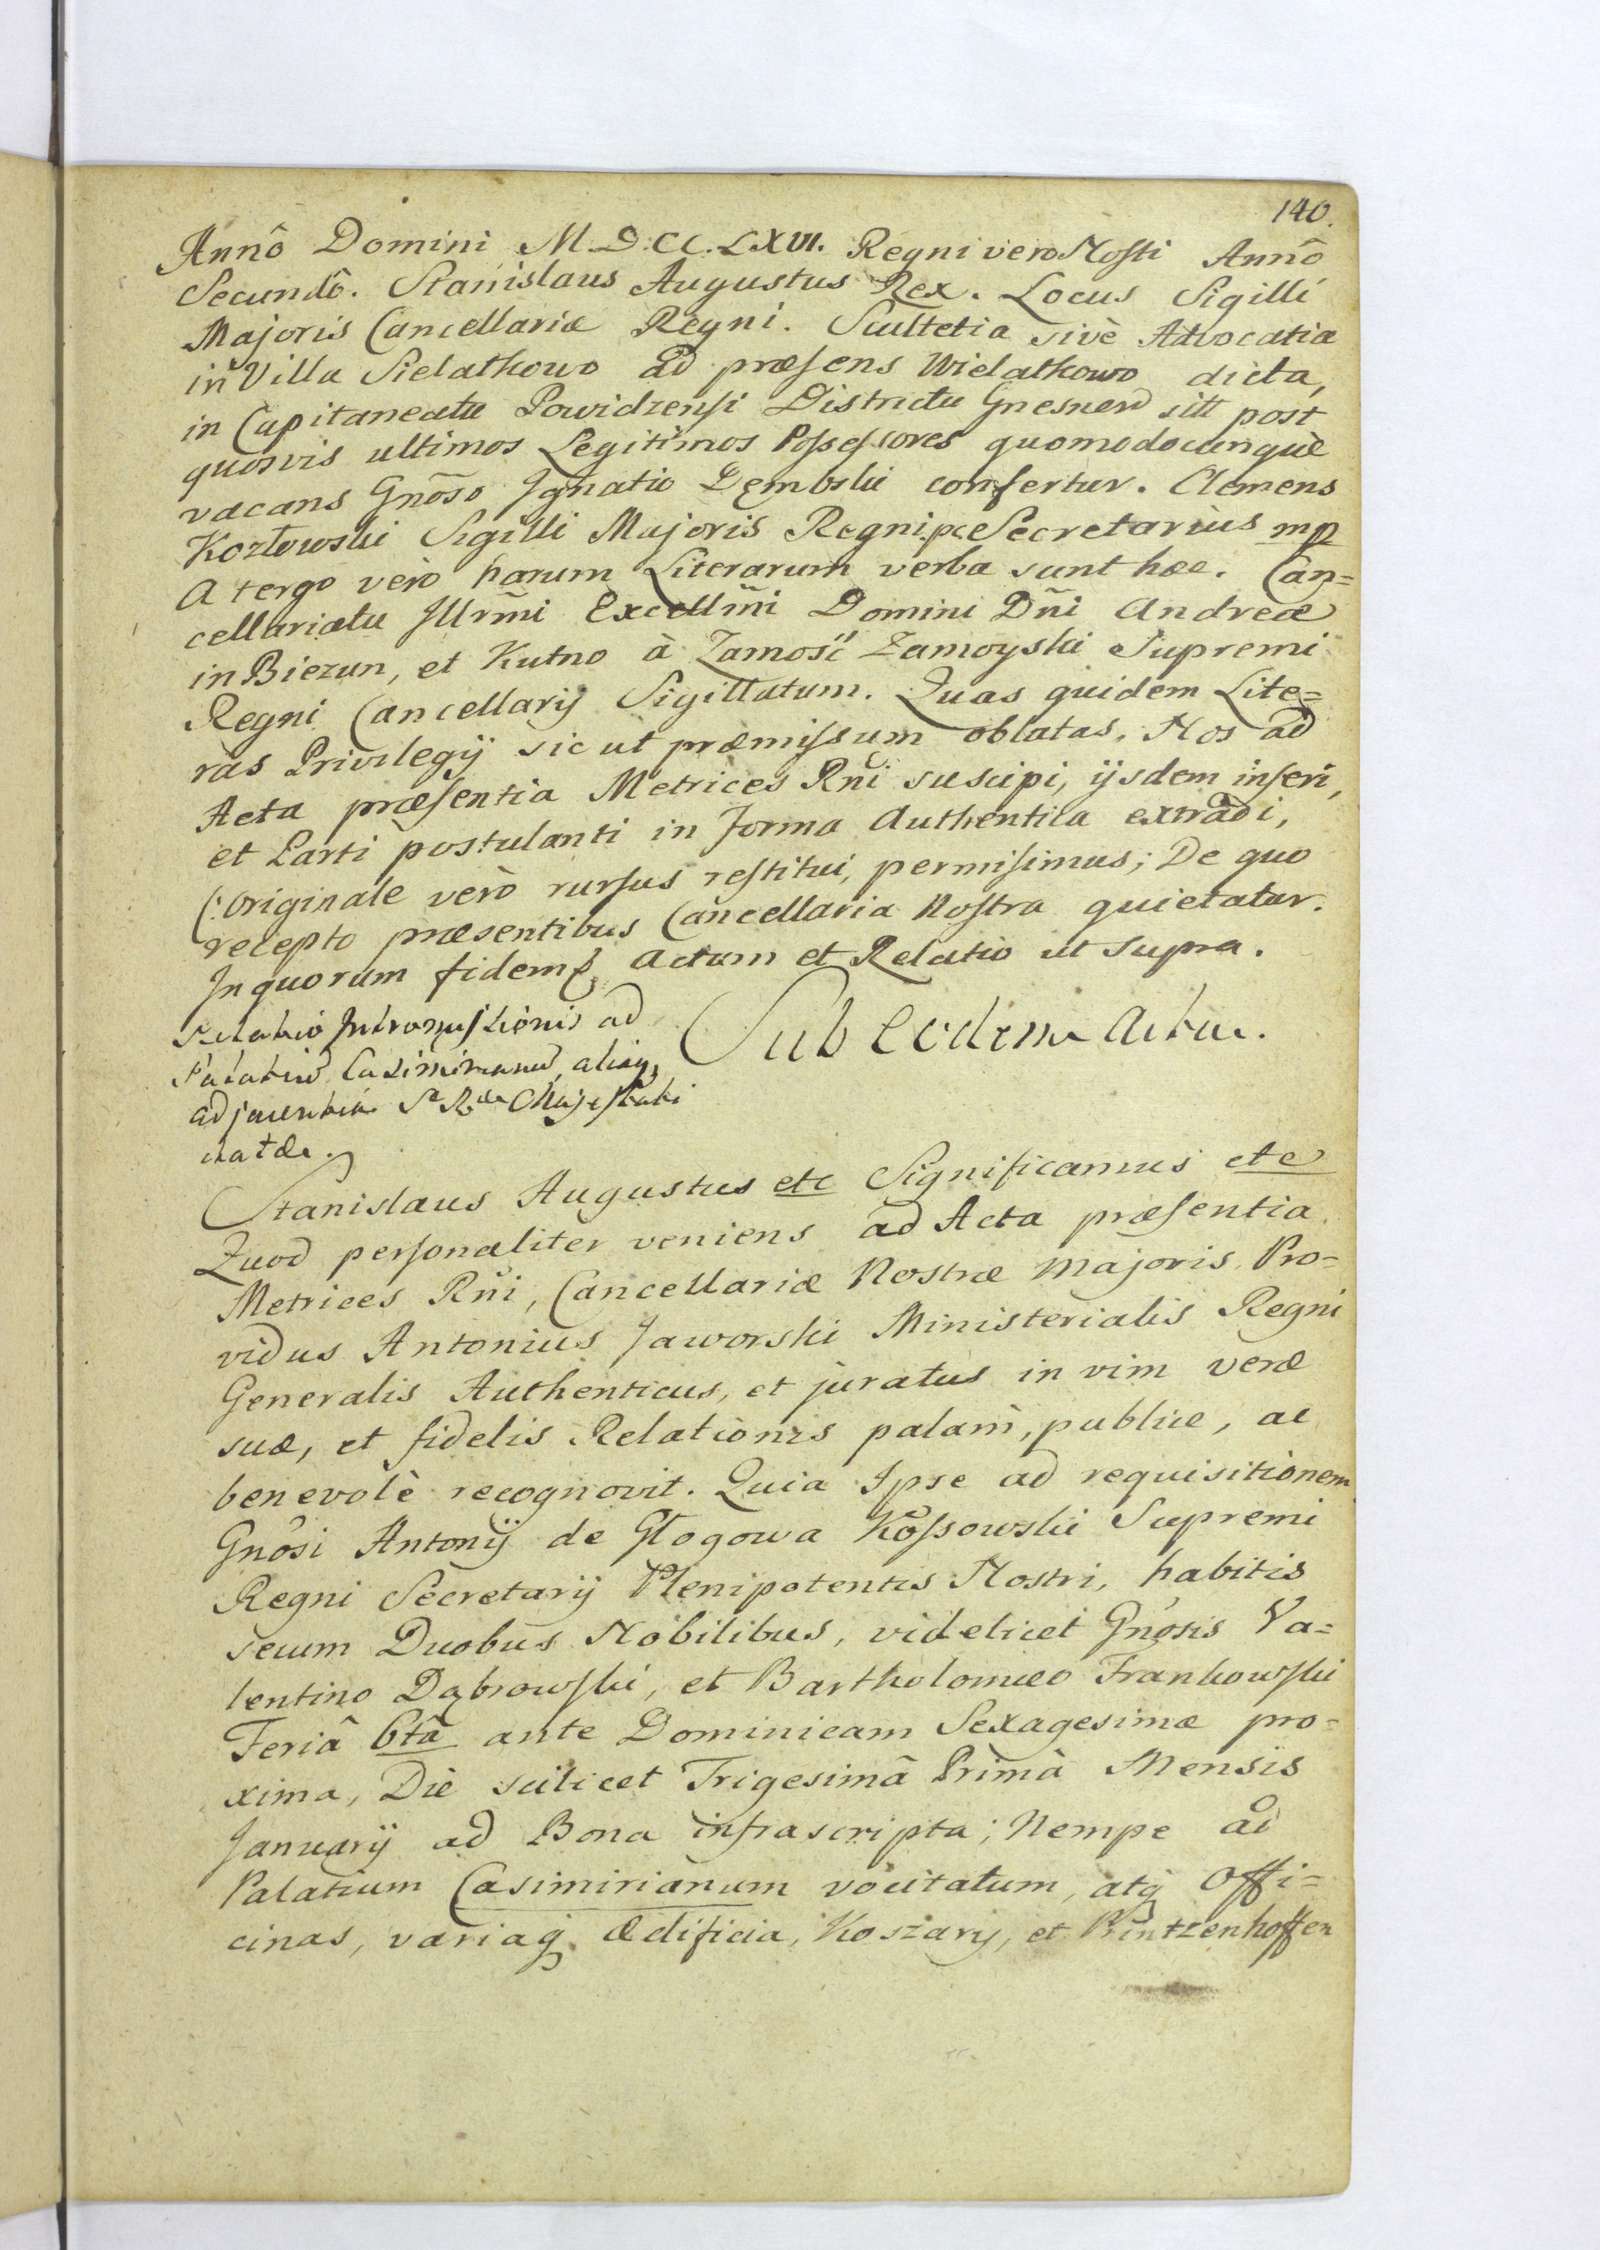 140.
Annô Domini M.D.CC.LXVI. Regni vero Nosti Annô
Secundô. Stanislaus Augustus Rex. Locus Sigilli
Majoris Cancellariæ Regni. Scultetia sivè Advocatia
in Villa Sielatkowo ad præsens Wielatkowo dicta,
in Capitaneatu Powidzensi Districtu Gnesnen sitt post
quosvis ultimos Legitimos Possessores quomodocunquè
vacans Gnõso Ignatio Dęmbski confertur. Clemens
Kozłowski Sigilli Majoris Regni pc Secretarius mp
A tergo vero harum Literarum verba sunt hæc. Can=
cellariatu Jllrm̃i Excellm̃i Domini Dñi Andreæ
in Biezun, et Kutno à Zamość Zamoyski Supremi
Regni Cancellarij Sigillatum. Quas quidem Lite=
ras Privilegij sic ut præmissum oblatas, Nos ad
Acta præsentia Metrices Rñi suscipi, ijsdem inseri,
et Parti postulanti in forma Authentica extradi,
(:Originale verò rursus restitui, permisimus; De quo
recepto præsentibus Cancellaria Nostra quietatur.
In quorum fidem Actum et Relatio ut supra.
Relatio Intromissionis ad
Palatiũ Casimirianũ, aliaq
adjacentia S R Majestati
datæ.
Sub Eodem Actu.
Stanislaus Augustus etc Significamus etc
Quod personaliter veniens ad Acta præsentia
Metrices Rñi, Cancellariæ Nostræ Majoris Pro-
vidus Antonius Jaworski Ministerialis Regni
Generalis Authenticus, et juratus in vim veræ
suæ, et fidelis Relationis palam, publice, ac
benevolè recognovit. Quia Ipse ad requisitionem
Gnôsi Antonij de Głogowa Kossowski Supremi
Regni Secretarij Plenipotentis Nostri, habitis
secum Duobus Nobilibus, videlicet Gnosis Va=
lentino Dąbrowski, et Bartholomæo Frankowski
Feriâ 6tâ ante Dominicam Sexagesimæ pro-
xima, Die scilicet Trigesimâ Primâ Mensis
Januarij ad Bona infrascripta; Nempe ad
Palatium Casimirianum vocitatum, atq Offi=
cinas, variaq Ædificia, Koszary, et Printzenhoffen